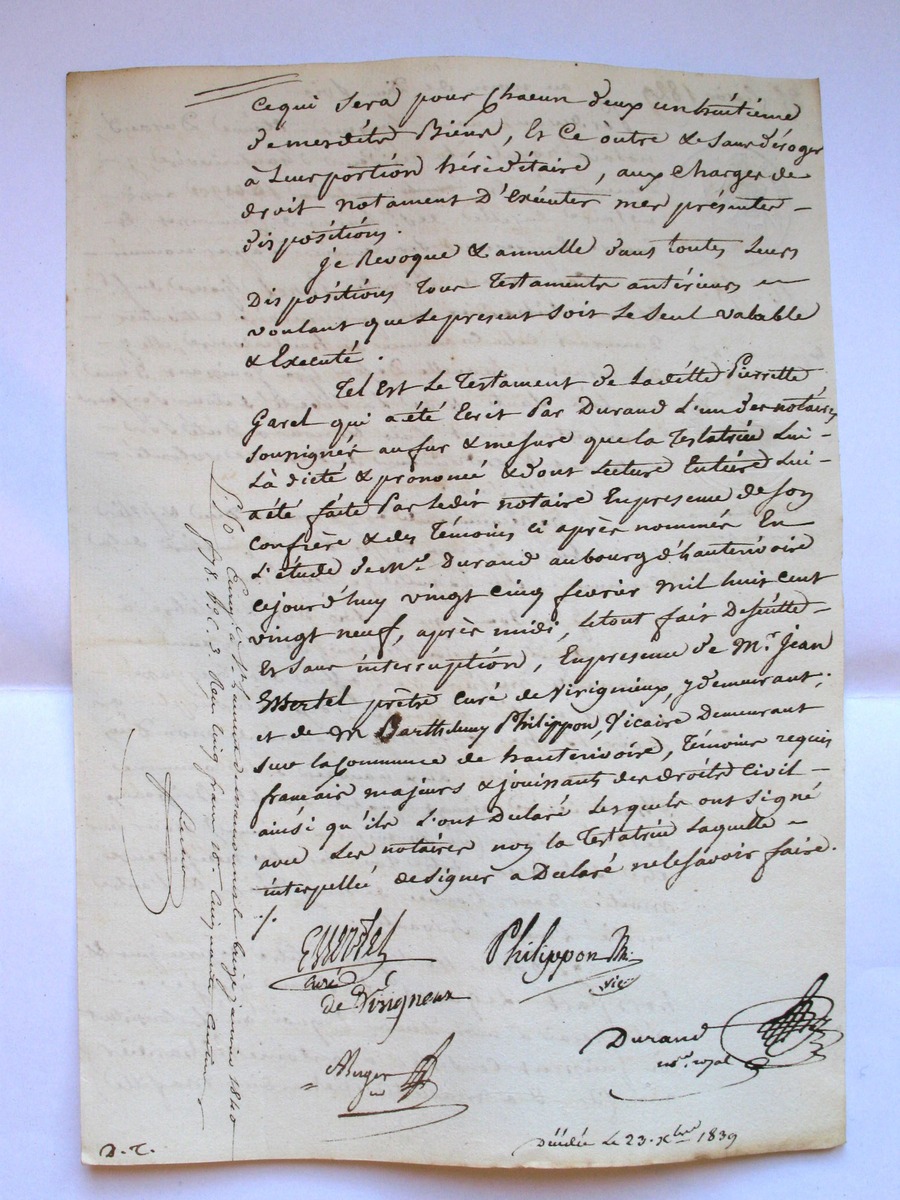 ce qui sera pour chacun d'eux un huitième
de mes dits Biens, et ce outre & sans déroger
à leur portion héréditaire, aux charges de
droit notament D'exécuter mes présentes -
dispositions.
Je Revoque & annulle dans toutes leurs
Dispositions tous testaments antérieurs -
voulant que le present soit le seul valable
& Executé.
Tel est le testament de ladille Pierrette
Garel qui a été Ecrit Par Durand l'un des notaires
soussignés au fur & mesure que la testatrice lui -
là dicté & prononcé & dont lecture Entière lui -
a été faite Par ledit notaire En presence de son
confrère & des témoins ci après nommés En
l'étude de Me. Durand au bourg d'hauterivoire
cejourd'huy vingt cinq fevrier mil huit cent
vingt neuf, après midi, le tout fait De suitte -
et sans interruption, En presence de Mr. Jean
prêtre curé de Virigneux, y demeurant;
et de M Barthelemy Philippon, Vicaire Demeurant
sur la Commune de hauterivoire, témoins requis
français majeurs & jouissants des droits Civil -
ainsi qu'ils l'ont Déclaré lesquels ont signé
avec les notaires non la testatrice laquelle -
interpellée de signer a Déclaré ne le savoir faire.
./.
curé
de Virigneux
Philippon
vic
Durand
no. royal
Décédée le 23. Xbre 1839
D. T.
treize janvier 1840
f. 78. 3 Reçu cinq francs 10e. cinquante centimes